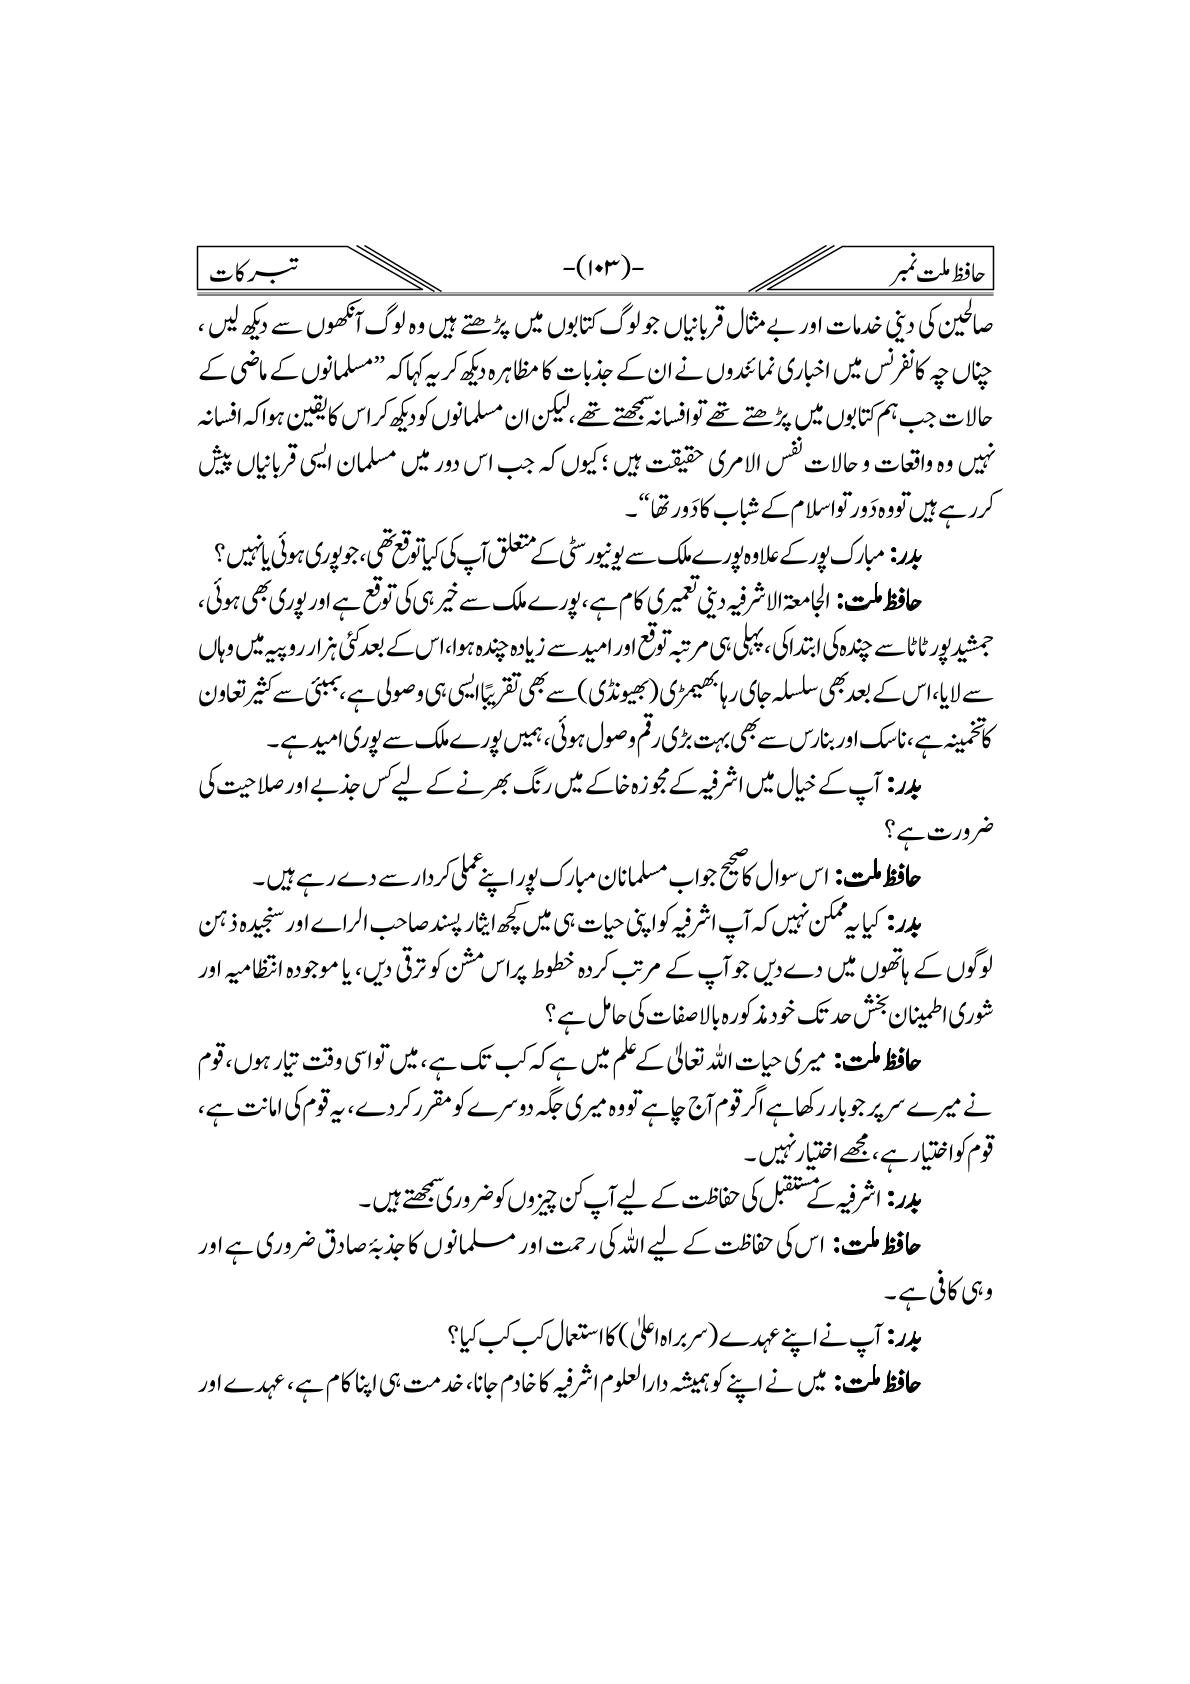 حافظ ملت نمبر -(۱۰۳)- تبرکات
صالحین کی دینی خدمات اور بے مثال قربانیاں جو لوگ کتابوں میں پڑھتے ہیں وہ لوگ آنکھوں سے دیکھ لیں ،
چناں چہ کانفرنس میں اخباری نمائندوں نے ان کے جذبات کا مظاہرہ دیکھ کر یہ کہا کہ ”مسلمانوں کے ماضی کے
حالات جب ہم کتابوں میں پڑھتے تھے تو افسانہ سمجھتے تھے، لیکن ان مسلمانوں کو دیکھ کر اس کا یقین ہوا کہ افسانہ
نہیں وہ واقعات و حالات نفس الامری حقیقت ہیں ؛ کیوں کہ جب اس دور میں مسلمان ایسی قربانیاں پیش
کر رہے ہیں تو وہ دَور تو اسلام کے شباب کا دَور تھا“۔
بدر: مبارک پور کے علاوہ پورے ملک سے یونیورسٹی کے متعلق آپ کی کیا توقع تھی، جو پوری ہوئی یا نہیں؟
حافظ ملت: الجامعۃ الاشرفیہ دینی تعمیری کام ہے، پورے ملک سے خیر ہی کی توقع ہے اور پوری بھی ہوئی،
جمشید پور ٹاٹا سے چندہ کی ابتدا کی، پہلی ہی مرتبہ توقع اور امید سے زیادہ چندہ ہوا، اس کے بعد کئی ہزار روپیہ میں وہاں
سے لایا، اس کے بعد بھی سلسلہ جای رہا بھیمڑی (بھیونڈی) سے بھی تقریبًا ایسی ہی وصولی ہے، بمبئی سے کثیر تعاون
کا تخمینہ ہے، ناسک اور بنارس سے بھی بہت بڑی رقم وصول ہوئی، ہمیں پورے ملک سے پوری امید ہے۔
بدر: آپ کے خیال میں اشرفیہ کے مجوزہ خاکے میں رنگ بھرنے کے لیے کس جذبے اور صلاحیت کی
ضرورت ہے؟
حافظ ملت: اس سوال کا صحیح جواب مسلمانان مبارک پور اپنے عملی کردار سے دے رہے ہیں۔
بدر: کیا یہ ممکن نہیں کہ آپ اشرفیہ کو اپنی حیات ہی میں کچھ ایثار پسند صاحب الراے اور سنجیدہ ذہن
لوگوں کے ہاتھوں میں دے دیں جو آپ کے مرتب کردہ خطوط پر اس مشن کو ترقی دیں، یا موجودہ انتظامیہ اور
شوری اطمینان بخش حد تک خود مذکورہ بالا صفات کی حامل ہے؟
حافظ ملت: میری حیات اللہ تعالیٰ کے علم میں ہے کہ کب تک ہے، میں تو اسی وقت تیار ہوں، قوم
نے میرے سر پر جو بار رکھا ہے اگر قوم آج چاہے تو وہ میری جگہ دوسرے کو مقرر کر دے، یہ قوم کی امانت ہے،
قوم کو اختیار ہے، مجھے اختیار نہیں۔
بدر: اشرفیہ کے مستقبل کی حفاظت کے لیے آپ کن چیزوں کو ضروری سمجھتے ہیں۔
حافظ ملت: اس کی حفاظت کے لیے اللہ کی رحمت اور مسلمانوں کا جذبۂ صادق ضروری ہے اور
وہی کافی ہے۔
بدر: آپ نے اپنے عہدے (سربراہ اعلیٰ) کا استعمال کب کب کیا؟
حافظ ملت: میں نے اپنے کو ہمیشہ دارالعلوم اشرفیہ کا خادم جانا، خدمت ہی اپنا کام ہے، عہدے اور